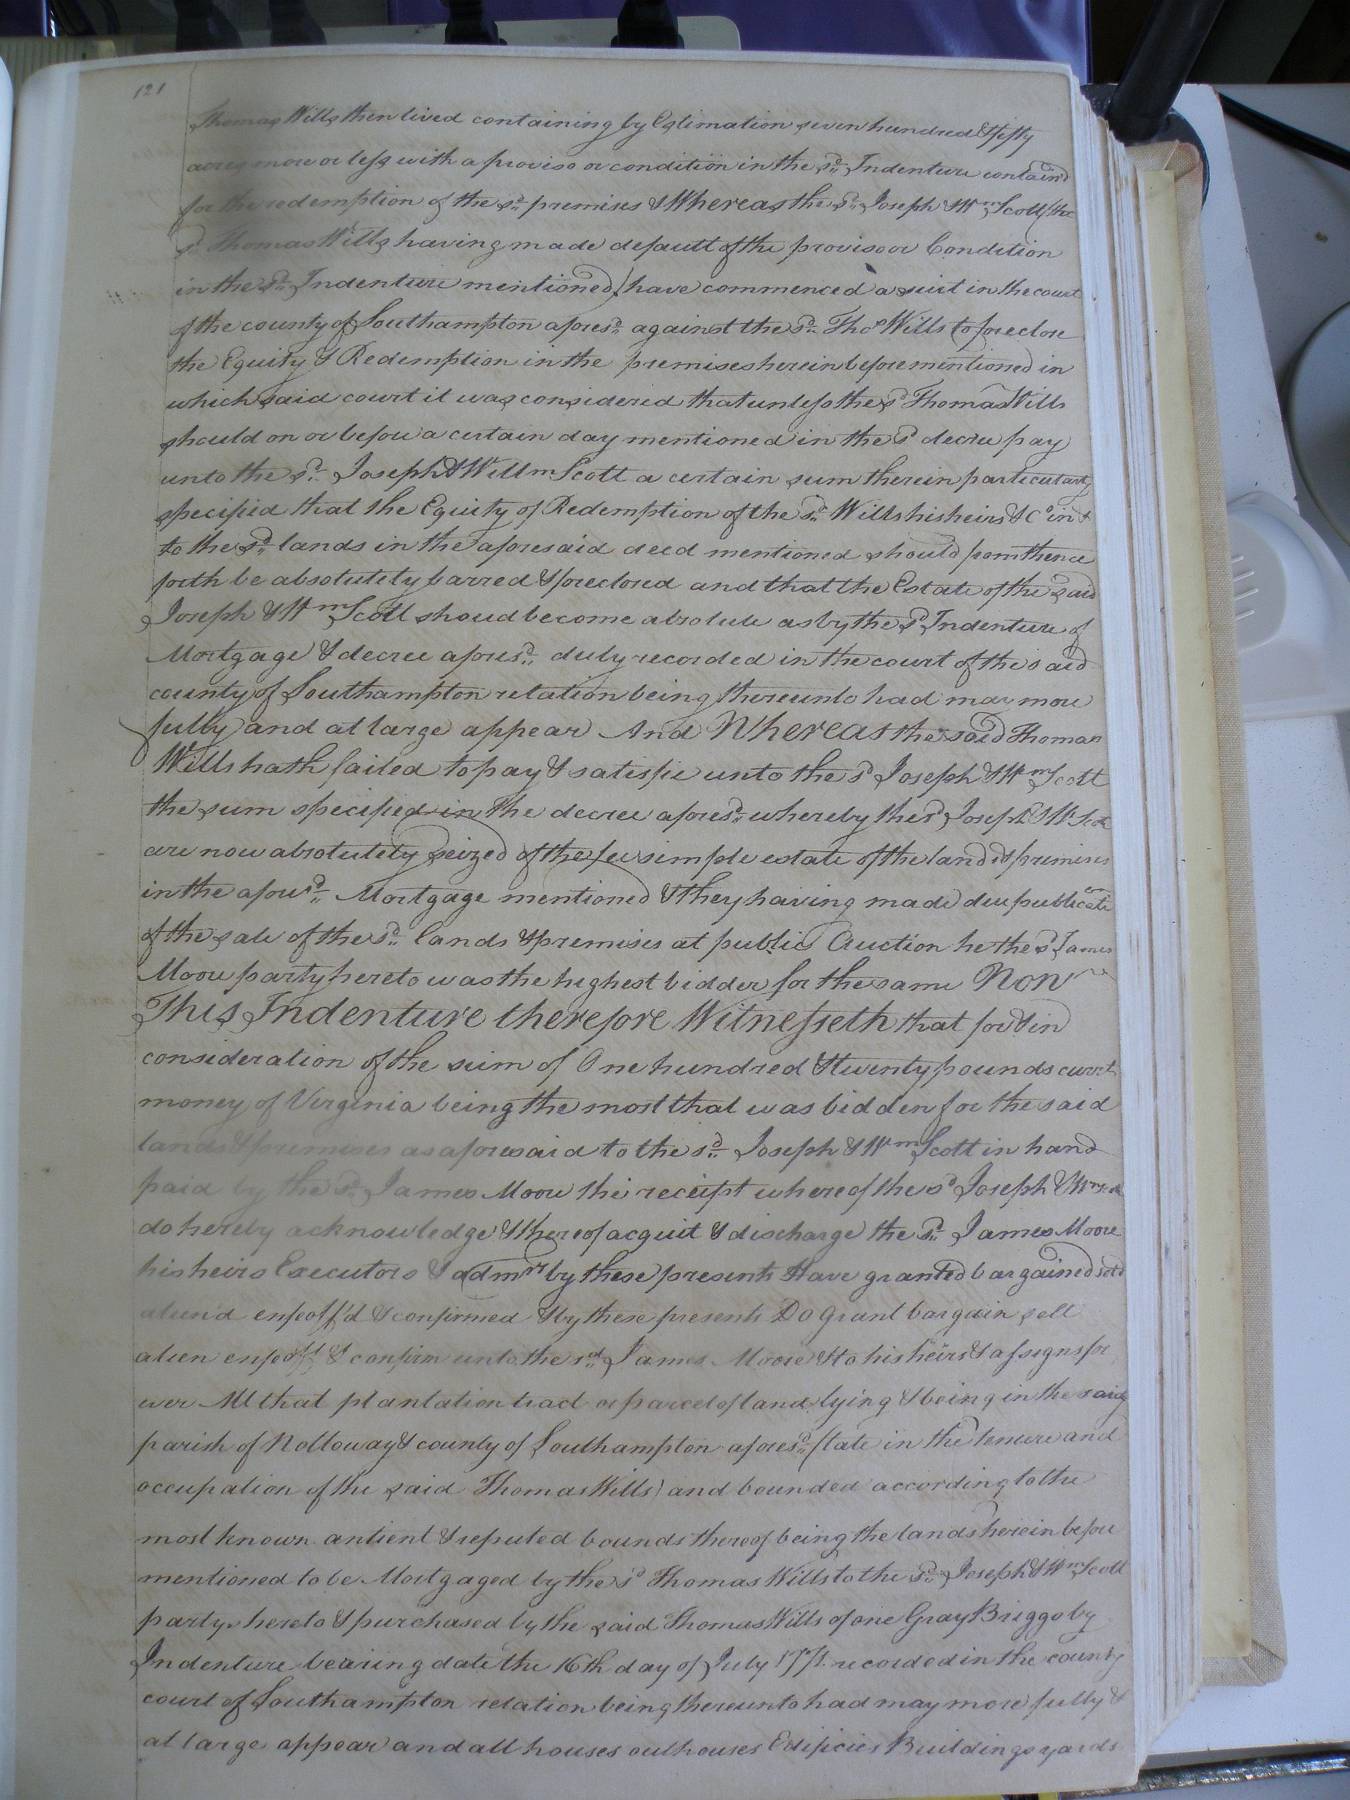 121
Thomas Wills then lived containing by Estimation seven hundred & fifty
acres more or less with a proviso or condition in the sd. Indenture contain'd
for the redemption of the sd. premises & Whereas the sd. Joseph & Wm. Scott (the
sd. Thomas Wills having made default of the proviso or Condition
in the sd. Indenture mentioned) have commenced a suit in the court
of the county of Southampton aforesd. against the sd. Thos. Wills to foreclose
the Equity & Redemption in the premises herein before mentioned in
which said court it was considered that unless the sd. Thomas Wills
should on or before a certain day mentioned in the sd. decree pay
unto the sd. Joseph & Willm Scott a certain sum therein particularly
specified that the Equity of Redemption of the sd. Wills his heirs &c. in &
to the sd. lands in the aforesaid deed mentioned should from thence
forth be absolutely barred & foreclosed and that the Estate of the said
Joseph & Wm Scott shoud become absolute as by the sd. Indenture of
Mortgage & decree aforesd. duly recorded in the court of the said
county of Southampton relation being thereunto had may more
fully and at large appear And Whereas the said Thomas
Wills hath failed to pay & satisfie unto the sd. Joseph & Wm Scott
the sum specified in the decree aforesd. whereby the sd. Joseph & Wm Scott
are now absolutely seized of the fee simple estate of the land & premises
in the aforesd. Mortgage mentioned & they having made due publication
of the sale of the sd. lands & premises at public Auction he the sd. James
Moore party hereto was the highest bidder for the same Now
This Indenture therefore Witnesseth that for & in
consideration of the sum of One hundred & twenty pounds currt.
money of Virginia being the most that was bidden for the said
land & premises as aforesaid to the sd. Joseph & Wm Scott in hand
paid by the sd. James Moore the receipt whereof the sd. Joseph & Wm Scott
do hereby acknowledge & thereof acquit & discharge the sd. James Moore
his heirs Executors & admrs by these presents Have granted bargained sold
alien'd enfeoff'd & confirmed & by these presents Do Grant bargain sell
alien enfeoff & confirm unto the sd. James Moore & to his heirs & assigns for
ever All that plantation tract or parcel of land lying & being in the said
parish of Nottoway & county of Southampton aforesd. (late in the tenure and
occupation of the said Thomas Wills) and bounded according to the
most known antient & reputed bounds thereof being the lands herein before
mentioned to be Mortgaged by the sd. Thomas Wills to the sd. Joseph & Wm Scott
partys hereto & purchased by the said Thomas Wills of one Gray Briggs by
Indenture bearing date the 16th day of July 1771. recorded in the county
court of Southampton relation being thereunto had may more fully &
at large appear and all houses outhouses Edificies Buildings yards